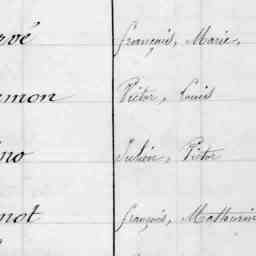 rvé François, Marie,
mon Victor, Louis
no Julien, Victor
not François, Mathurin